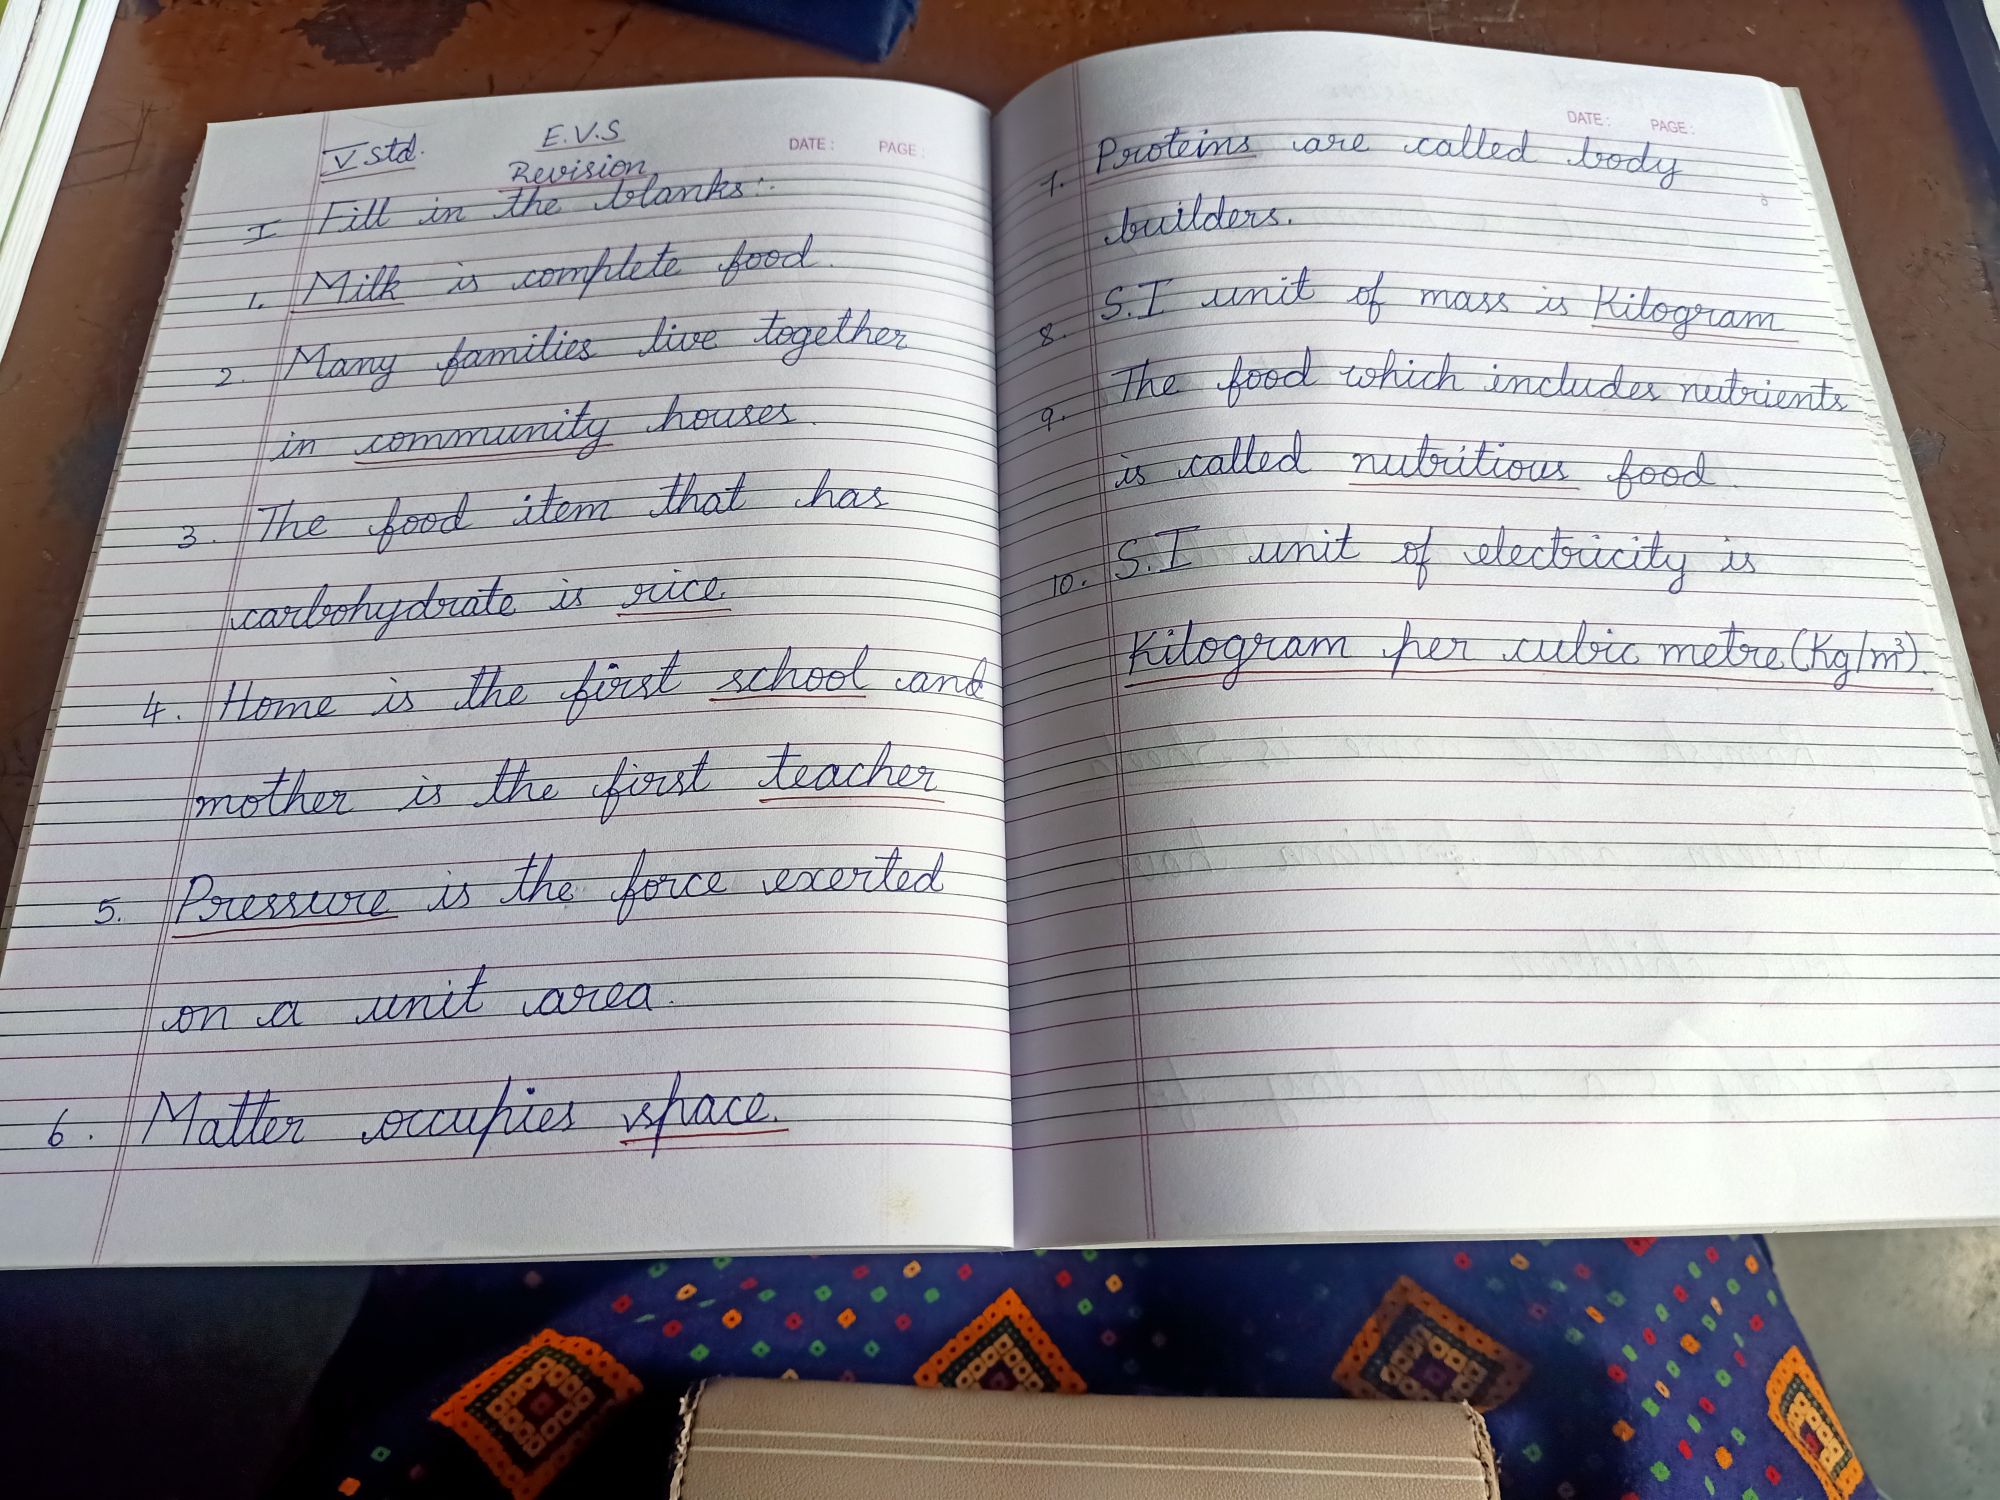 V Std.
E.V.S
DATE: PAGE:
Revision
I Fill in the blanks:
1. Milk is complete food.
2. Many families live together
in community houses.
3. The food item that has
carbohydrate is rice.
4. Home is the first school and
mother is the first teacher
5. Pressure is the force exerted
on a unit area.
6. Matter occupies space.
DATE: PAGE:
7. Proteins are called body
builders.
8. S.I unit of mass is Kilogram
9. The food which includes nutrients
is called nutritious food.
10. S.I unit of electricity is
Kilogram per cubic metre (Kg/m³).